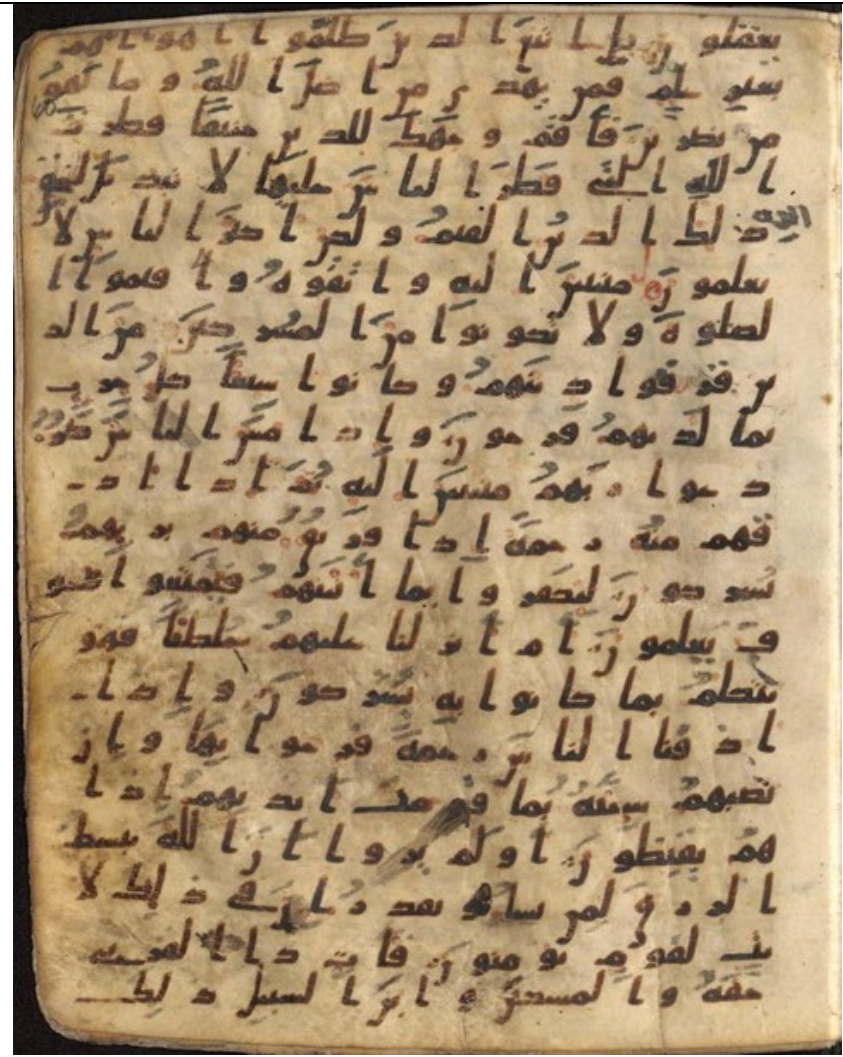 يعقلون بل اتبع الذين ظلموا اهواهم
بغير علم فمن يهدي من اضل الله و ما لهم
من نصرين فاقم و جهك للدين حنيفا فطرت
الله التي فطر الناس عليها لا تبديل لخلق
الله ذلك الدين القيم و لكن اكثر الناس لا
يعلمون منيبين اليه و اتقوه و اقيموا ا
لصلوة و لا تكونوا من المشركين من الذ
ين فرقوا دينهم و كانوا شيعا كل حزب
بما لديهم فرحون و اذا مس الناس ضر
دعوا ربهم منيبين اليه ثم اذا اذا
قهم منه رحمة اذا فريق منهم بربهم
يشركون ليكفروا بما اتينهم فتمتعوا فسو
ف تعلمون ام انزلنا عليهم سلطنا فهو
يتكلم بما كانوا به يشركون و اذا
اذقنا الناس رحمة فرحوا بها و ان
تصبهم سيئة بما قدمت ايديهم اذا
هم يقنطون اولم يروا ان الله يبسط
الرزق لمن يشا و يقدر ان في ذلك لا
يت لقوم يومنون فات ذا القربى
حقه و المسكين و ابن السبيل ذلك